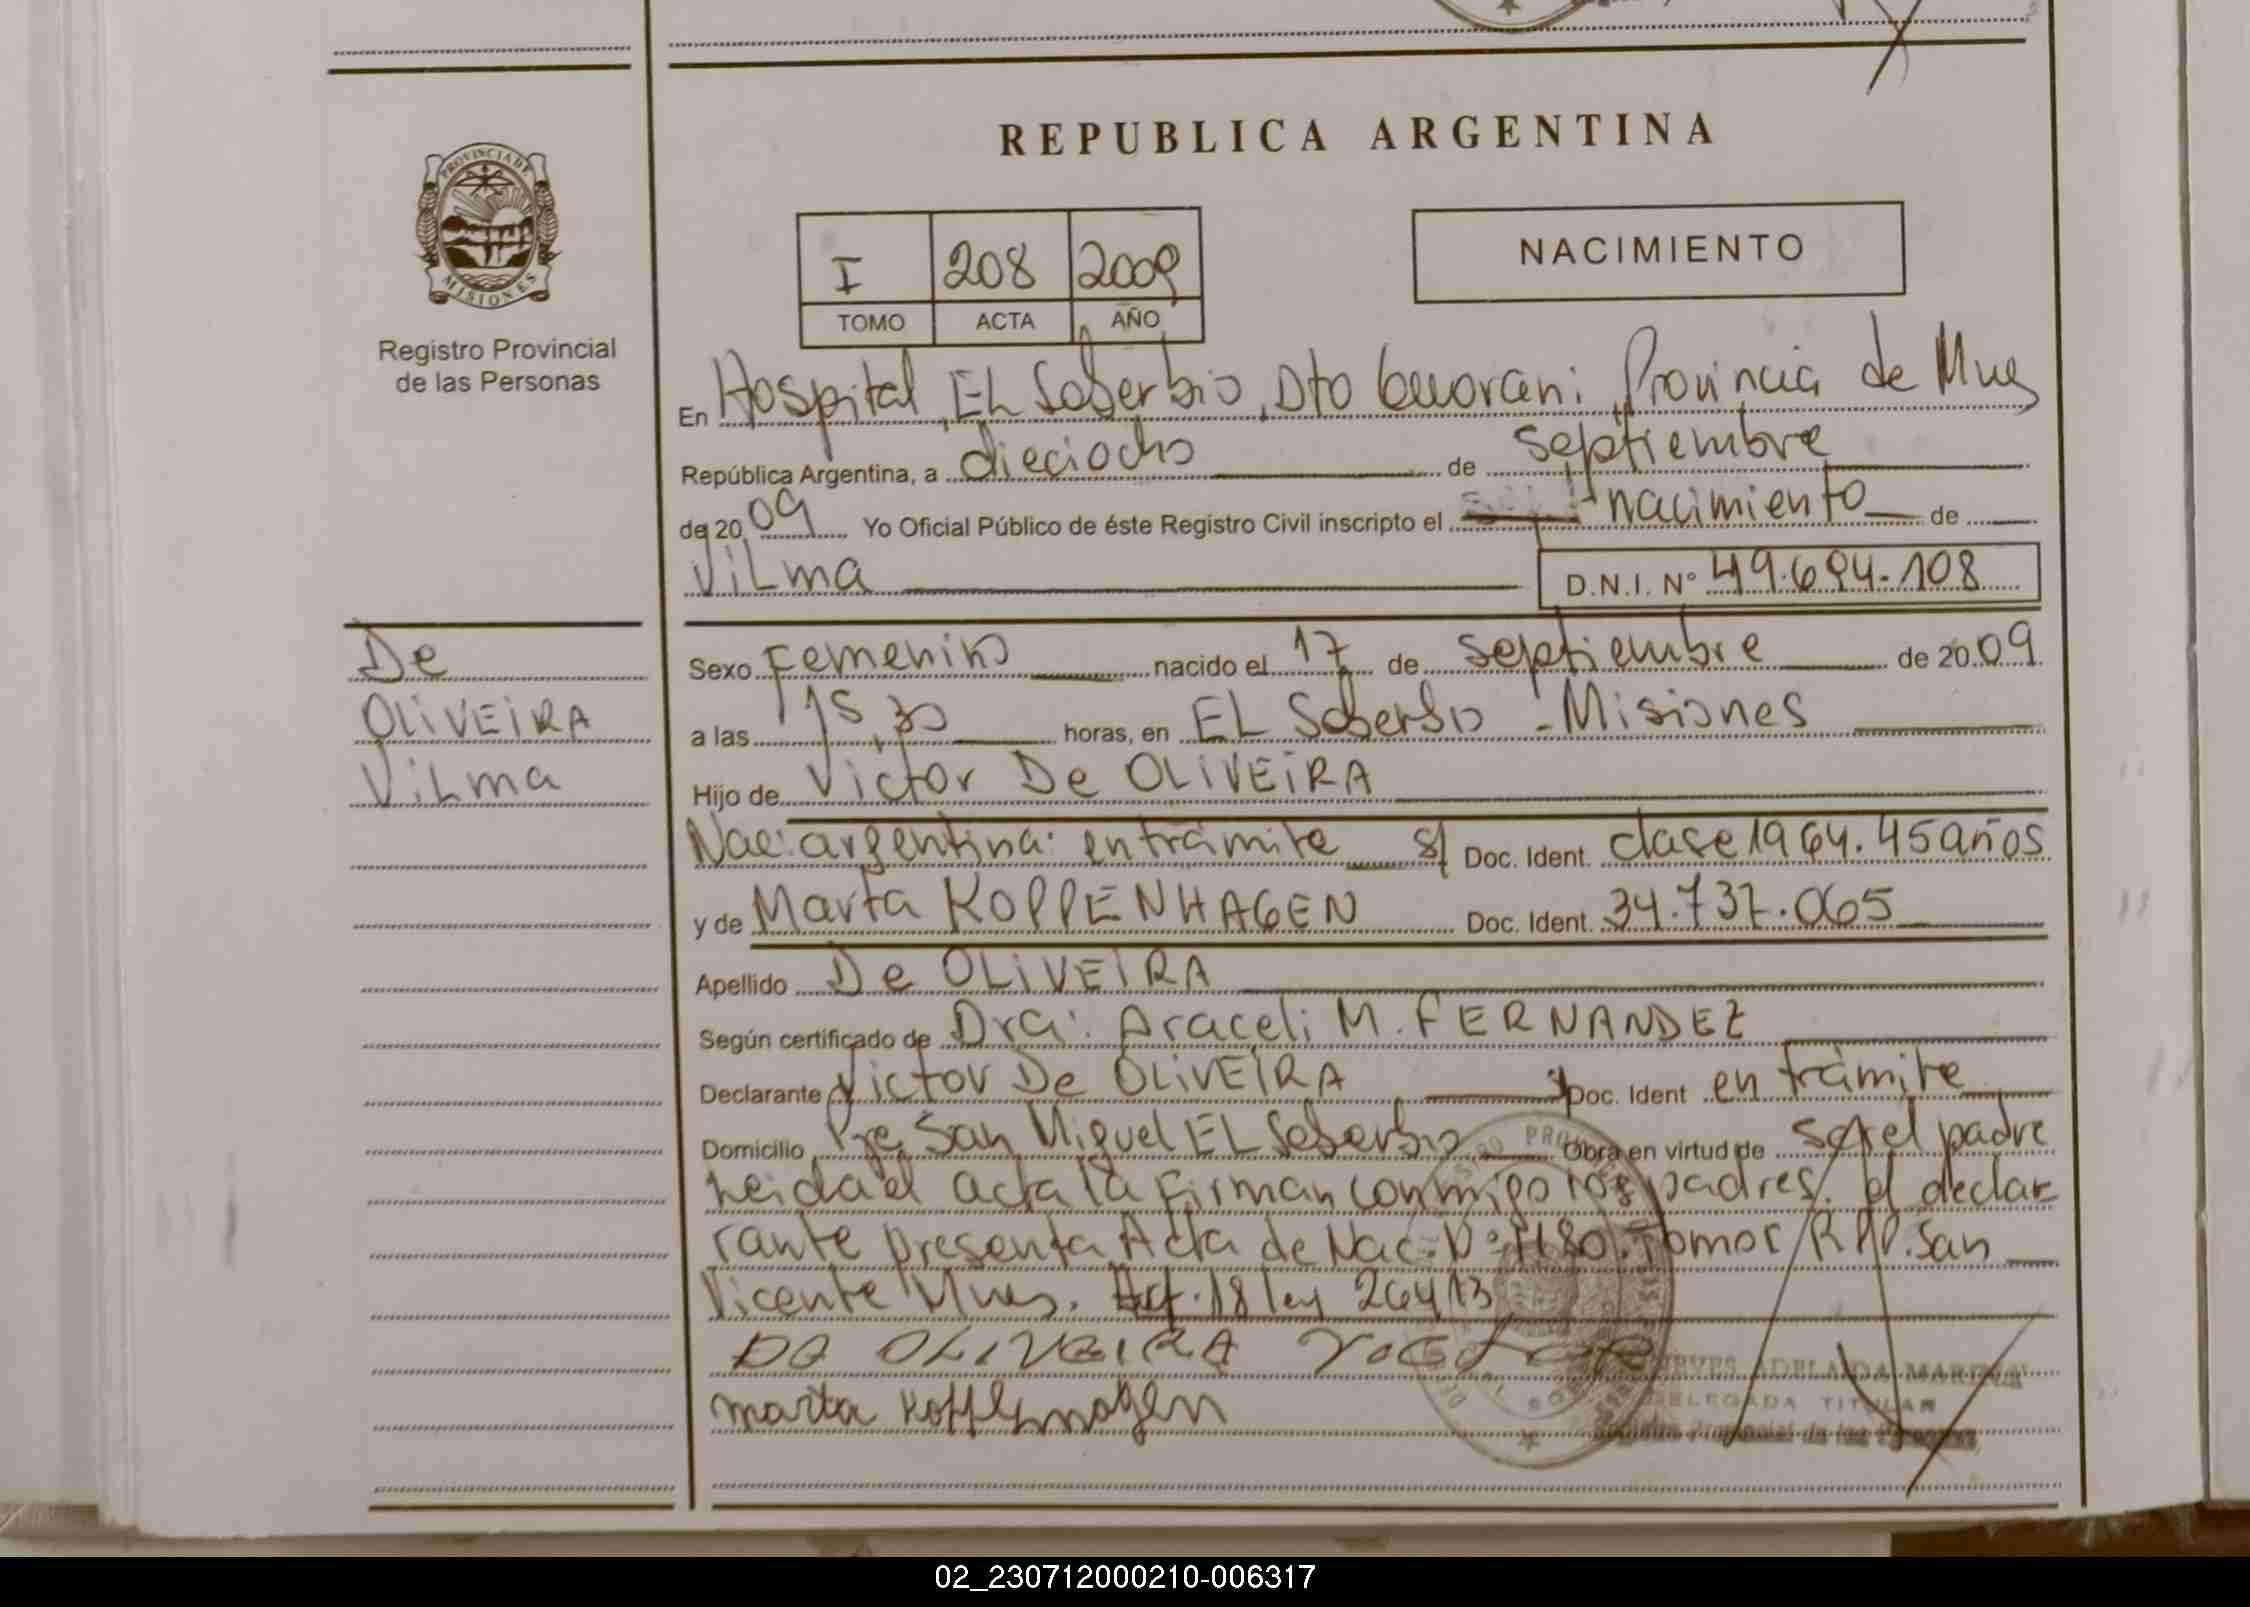 REPUBLICA ARGENTINA
PROVINCIA DE
MISIONES
Registro Provincial
de las Personas
I 208 2009
TOMO ACTA AÑO
NACIMIENTO
En Hospital, EL Soberbio, Dto Guarani Provincia de Mnes
República Argentina, a dieciocho de septiembre
de 2009 Yo Oficial Público de éste Registro Civil inscripto el nacimiento de
ViLma D.N.I. Nº 49.694.108
De
OLiVEiRA
ViLma
Sexo Femenino nacido el 17 de septiembre de 2009
a las 15,30 horas, en EL Soberbio - Misiones
Hijo de Victor De OLiVEiRA
Nac: argentina: en trámite s/ Doc. Ident. clase 1964. 45 años
y de Marta KOPPENHAGEN Doc. Ident. 34.737.065
Apellido De OLiVEiRA
Según certificado de Dra: Araceli M. FERNANDEZ
Declarante Victor De OLiVEiRA Doc. Ident en trámite
Domicilio Pje San Miguel EL Soberbio Obra en virtud de ser el padre
Leida el acta la firman conmigo los padres. el decla
rante presenta Acta de Nac. Nº Tomo R.P.P. San
Vicente Mnes. Art. 18 ley 26413
DE OLIVEIRA VICTOR
marta Koppenhagen
NIEVES ADELAIDA MARIN
DELEGADA TITULAR
Registro Provincial de las Personas
02_230712000210-006317